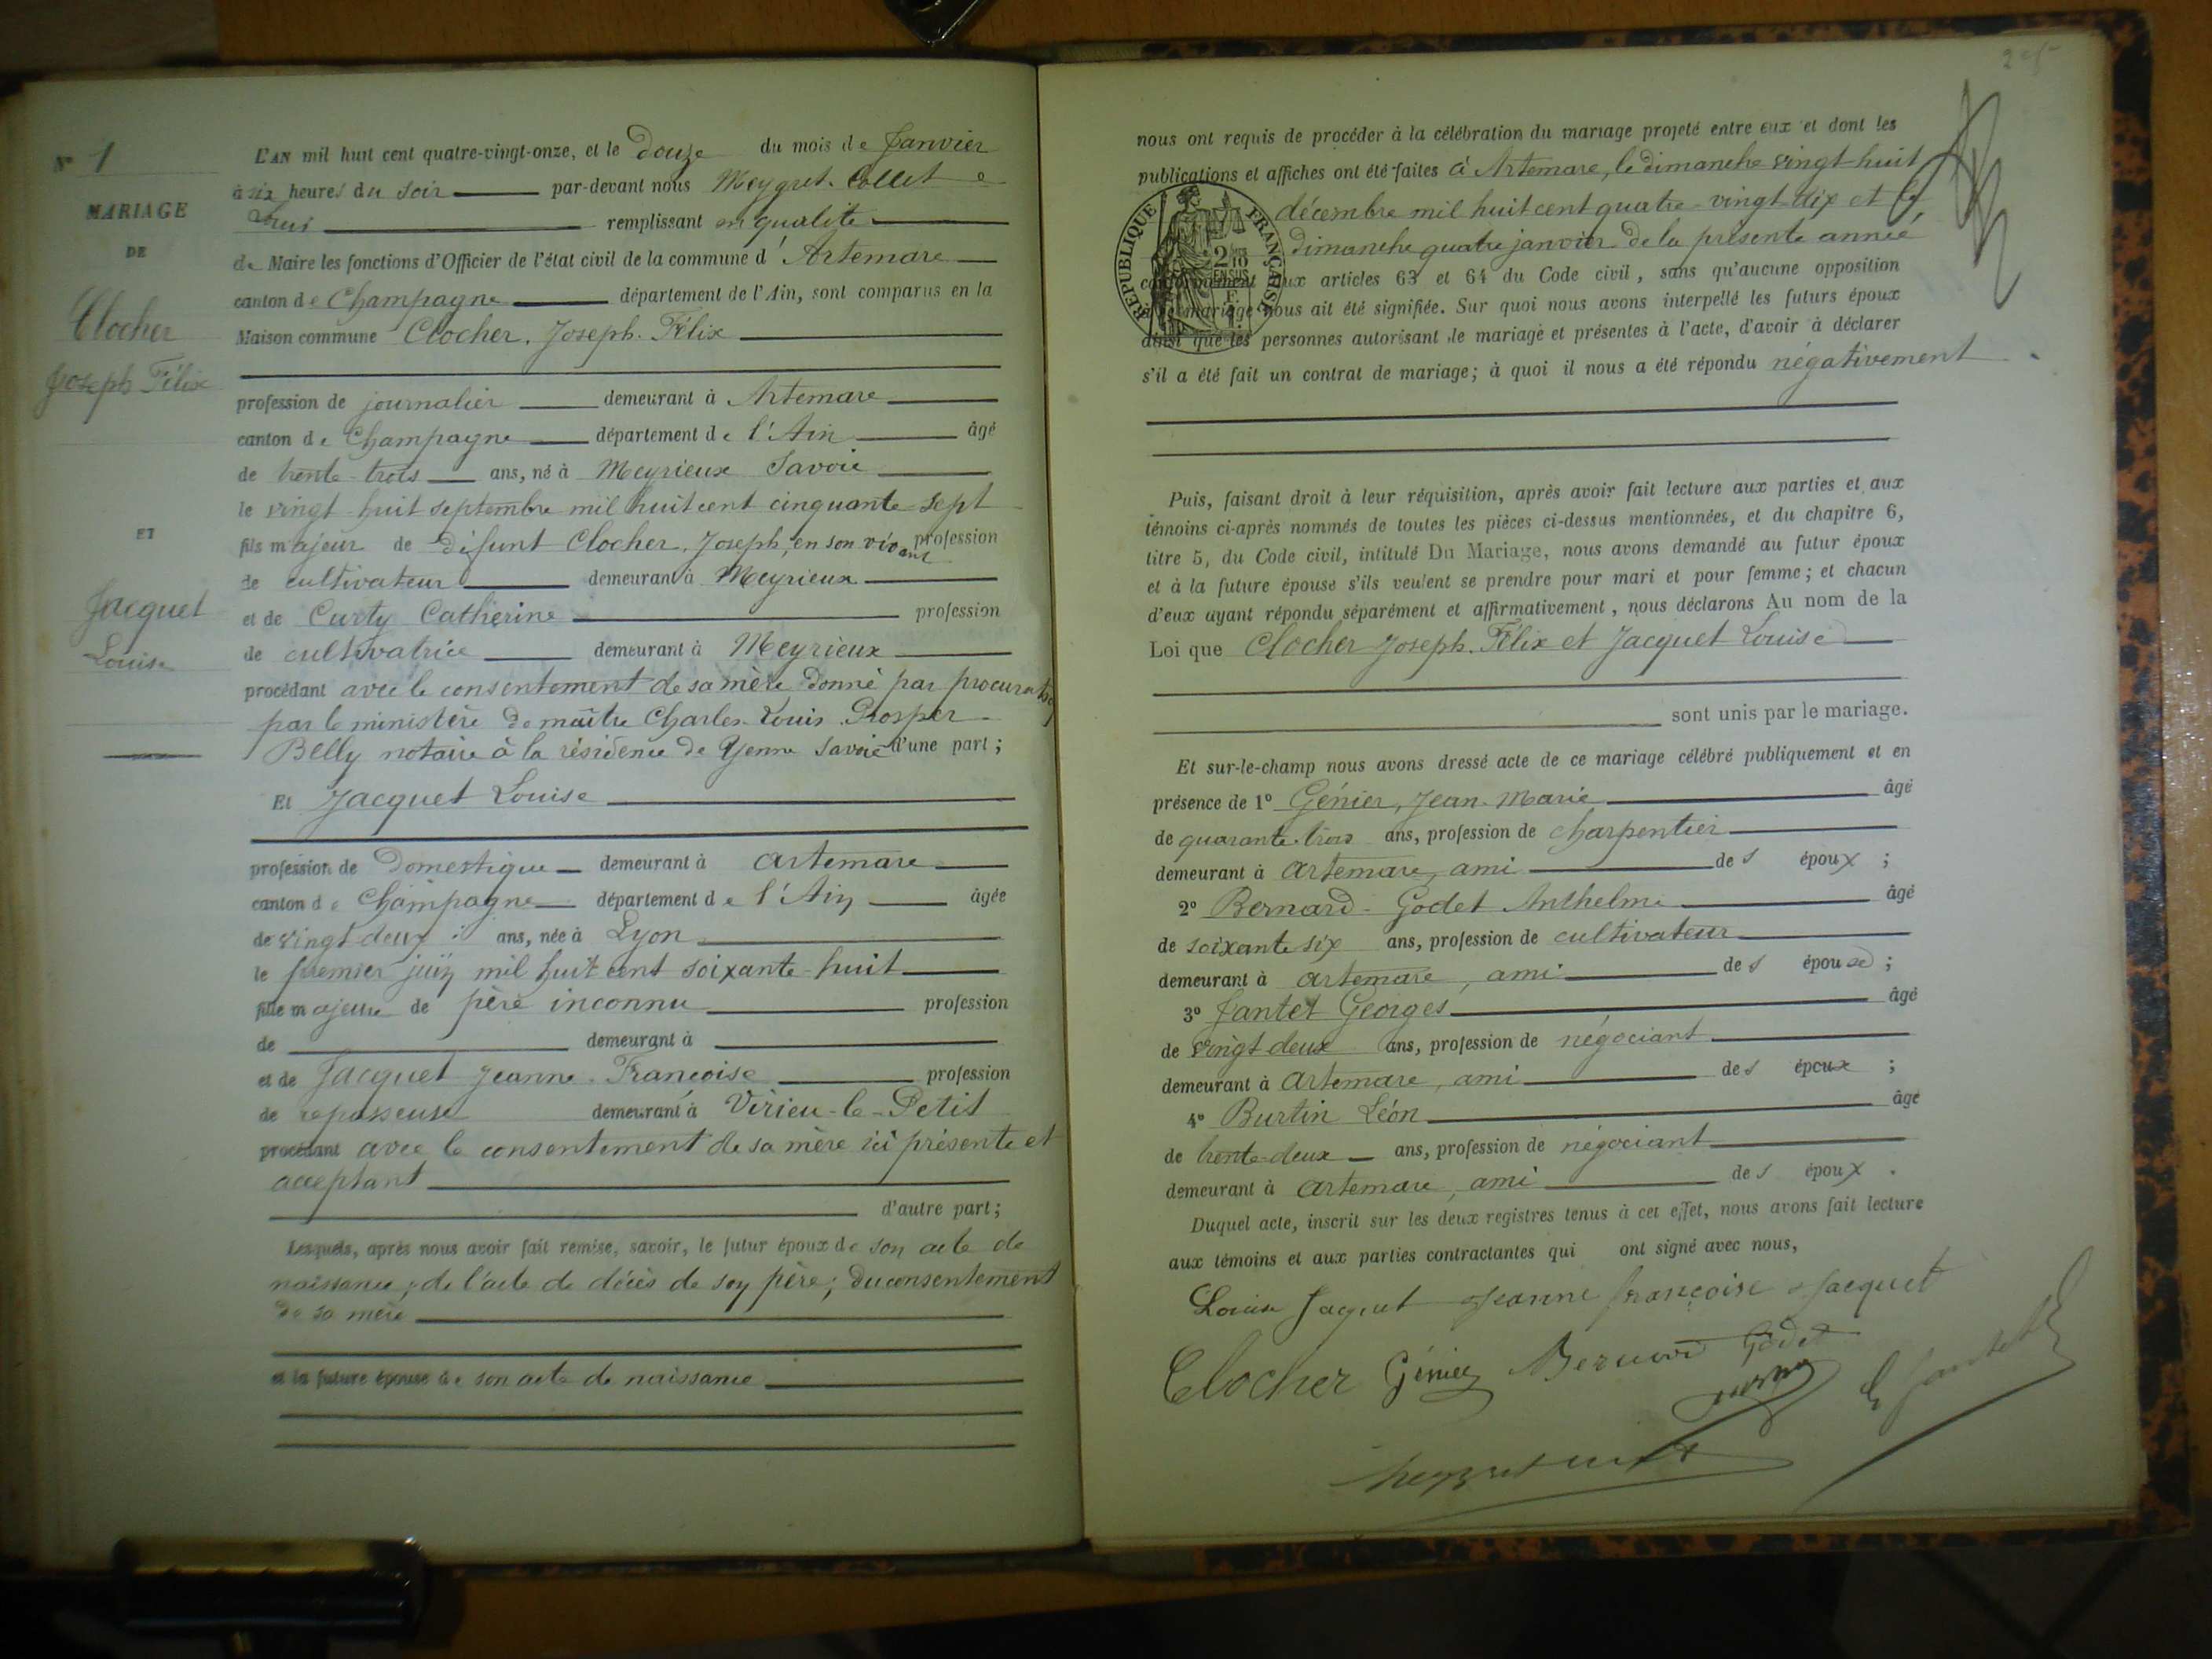 N° 1
MARIAGE
DE
Clocher
Joseph Félix
ET
Jacquet
Louise
L'AN mil huit cent quatre-vingt-onze, et le douze du mois de Janvier
à six heures du soir par-devant nous Meygret-Collet
remplissant en qualité
de Maire les fonctions d'Officier de l'état civil de la commune d'Artemare
canton de Champagne département de l'Ain, sont comparus en la
Maison commune Clocher, Joseph-Félix
profession de journalier demeurant à Artemare
canton de Champagne département de l'Ain âgé
de trente-trois ans, né à Meyrieux Savoie
le vingt-huit septembre mil huit cent cinquante-sept
fils majeur de défunt Clocher, Joseph, en son vivant profession
de cultivateur demeurant à Meyrieux
et de Curty Catherine profession
de cultivatrice demeurant à Meyrieux
procédant avec le consentement de sa mère donné par procuration
par le ministère de maître Charles-Louis Prosper
Belly notaire à la résidence de Yenne Savoie d'une part;
Et Jacquet Louise
profession de Domestique demeurant à Artemare
canton de Champagne département de l'Ain âgée
de vingt-deux ans, née à Lyon
le premier juin mil huit cent soixante-huit
fille majeure de père inconnu profession
de demeurant à
et de Jacquet Jeanne-Françoise profession
de repasseuse demeurant à Virieu-le-Petit
procédant avec le consentement de sa mère ici présente et
acceptant
d'autre part;
Lesquels, après nous avoir fait remise, savoir, le futur époux de son acte de
naissance; de l'acte de décès de son père; du consentement
de sa mère
et la future épouse de son acte de naissance
nous ont requis de procéder à la célébration du mariage projeté entre eux et dont les
publications et affiches ont été faites à Artemare, le dimanche vingt-huit
décembre mil huit cent quatre-vingt-dix et le
dimanche quatre janvier de la présente année
RÉPUBLIQUE FRANÇAISE
conformément aux articles 63 et 64 du Code civil, sans qu'aucune opposition
mariage nous ait été signifiée. Sur quoi nous avons interpellé les futurs époux
ainsi que les personnes autorisant le mariage et présentes à l'acte, d'avoir à déclarer
s'il a été fait un contrat de mariage; à quoi il nous a été répondu négativement
Puis, faisant droit à leur réquisition, après avoir fait lecture aux parties et aux
témoins ci-après nommés de toutes les pièces ci-dessus mentionnées, et du chapitre 6,
titre 5, du Code civil, intitulé Du Mariage, nous avons demandé au futur époux
et à la future épouse s'ils veulent se prendre pour mari et pour femme; et chacun
d'eux ayant répondu séparément et affirmativement, nous déclarons Au nom de la
Loi que Clocher Joseph-Félix et Jacquet Louise
sont unis par le mariage.
Et sur-le-champ nous avons dressé acte de ce mariage célébré publiquement et en
présence de 1° Génier, Jean-Marie âgé
de quarante-trois ans, profession de charpentier
demeurant à Artemare, ami des époux;
2° Bernard-Godet Anthelme âgé
de soixante six ans, profession de cultivateur
demeurant à Artemare, ami des époux;
3° Jantet Georges âgé
de vingt deux ans, profession de négociant
demeurant à Artemare, ami des époux;
4° Burtin Léon âgé
de trente-deux ans, profession de négociant
demeurant à Artemare, ami des époux.
Duquel acte, inscrit sur les deux registres tenus à cet effet, nous avons fait lecture
aux témoins et aux parties contractantes qui ont signé avec nous,
Louise Jacquet Jeanne françoise Jacquet
Clocher Génier Bernard Godet